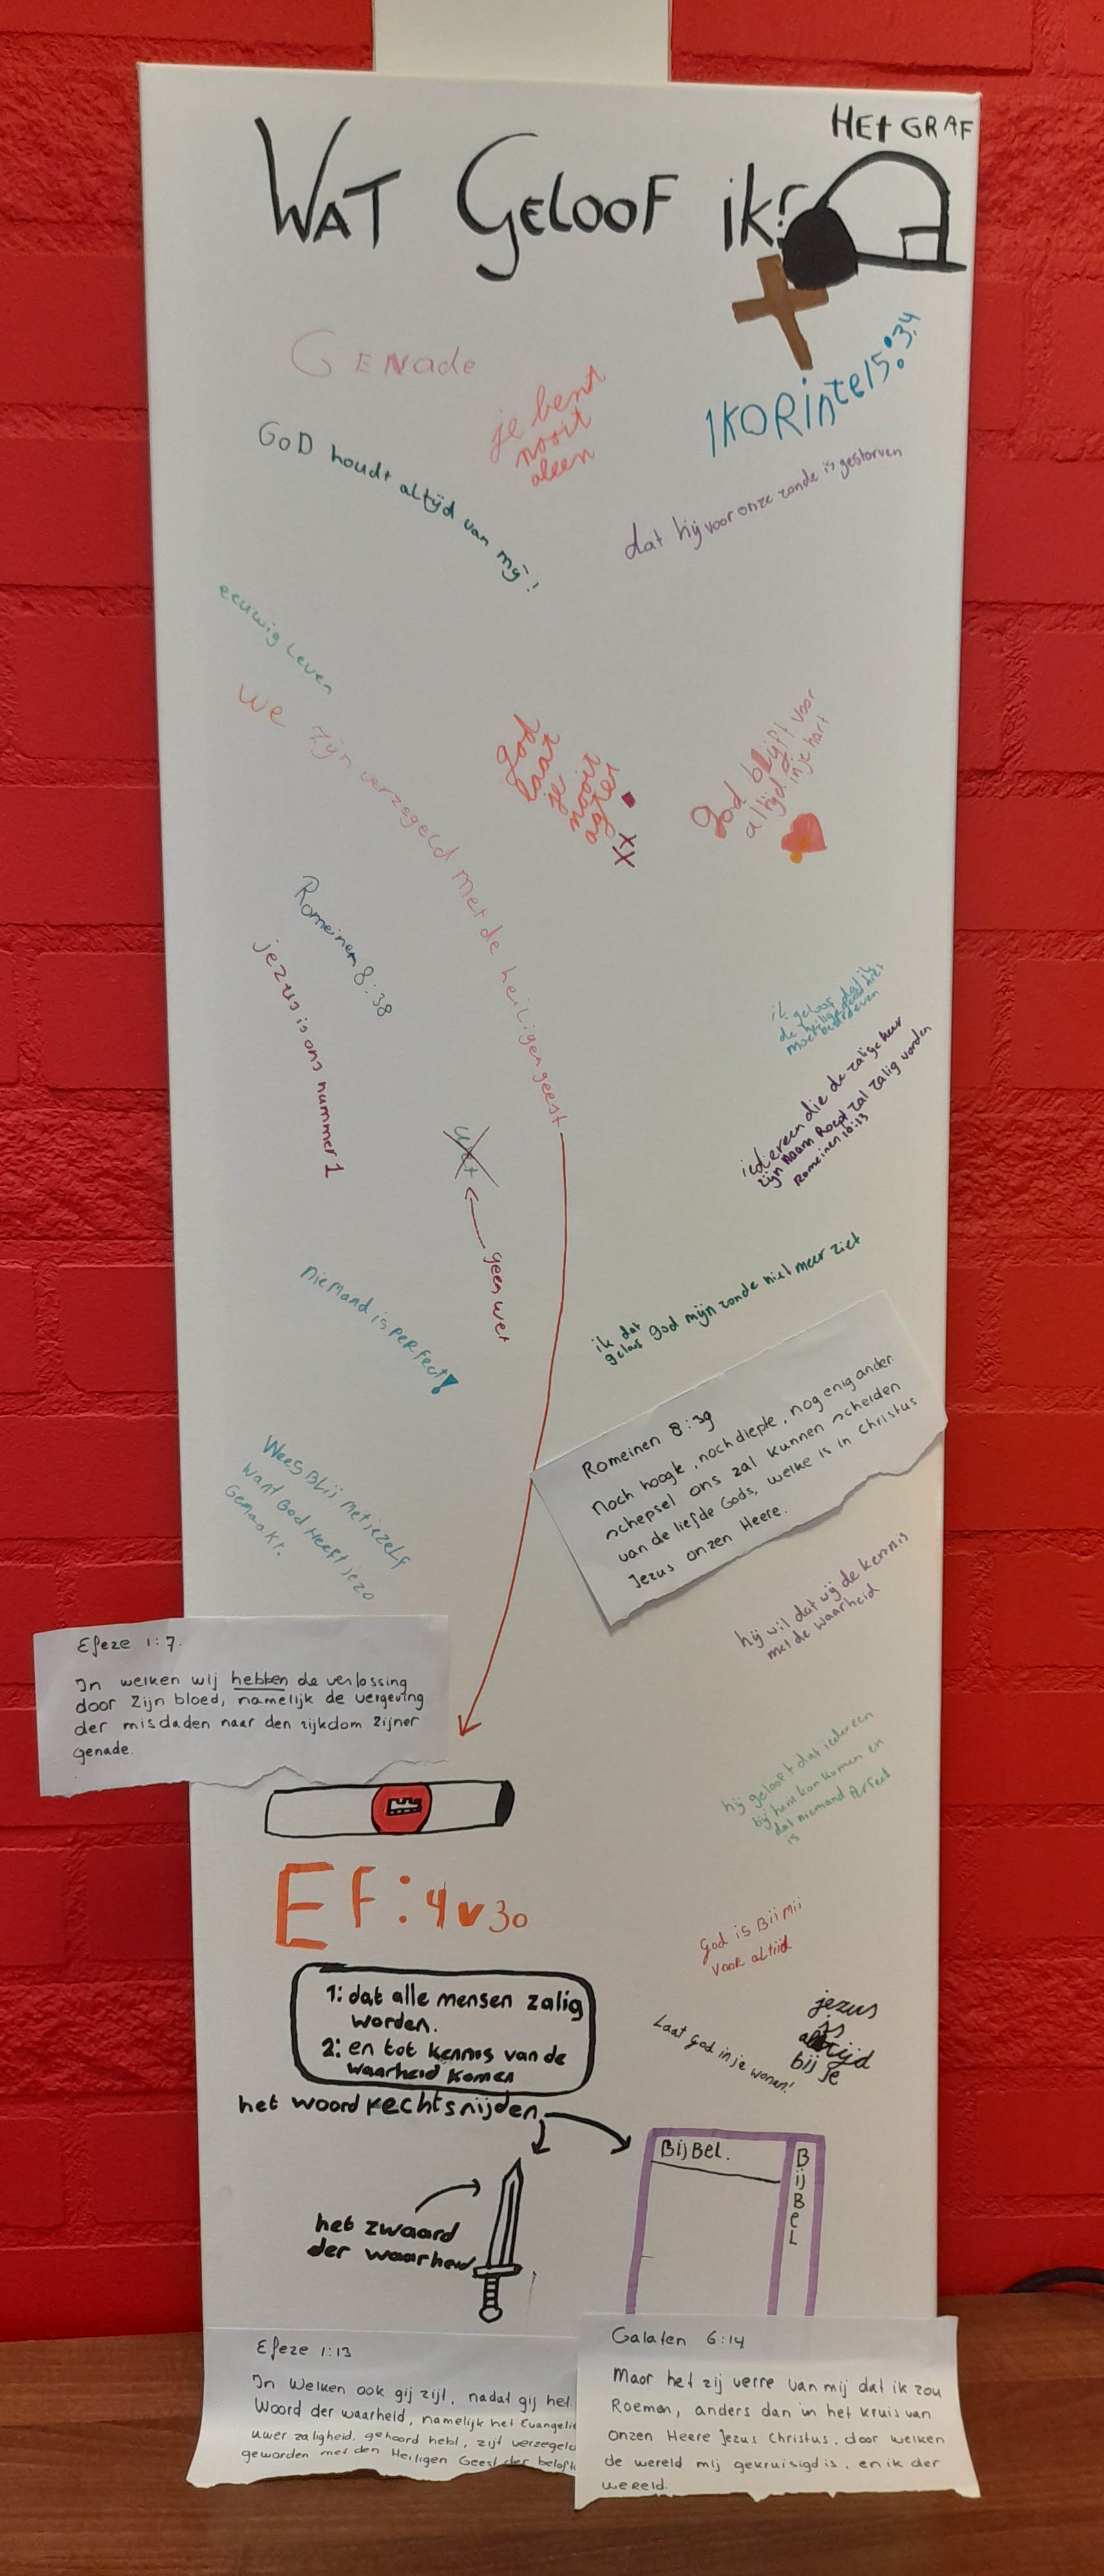 HEt GRAF
WAT GELOOF ik?
GENade
je bent
nooit
aleen
1KORinte15:34
GOD houdt altijd van mij!
dat hij voor onze zonde is gestorven
eeuwig Leven
we zijn verzegeld met de heiligen geest
god
laat
je
nooit
agter
xx
god blijft voor
altijd in je hart
Romeinen 8:38
jezus is ons nummer 1
ik geloof dat ik
de heilige geest niet
moet
iedereen die de zaligeheer
zijn Naam Roept zal zalig worden
Romeinen 10:13
wet
geen wet
niemand is perfect!
ik dat
geloof god mijn zonde niet meer ziet
Romeinen 8:39
Noch hoogte, noch diepte, nog enig ander
schepsel ons zal kunnen scheiden
van de liefde Gods, welke is in Christus
Jezus onzen Heere.
Wees Blij met jezelf
want God Heeft je zo
Gemaakt.
hij wil dat wij de kennis
met de waarheid
Efeze 1:7.
In welken wij hebben de verlossing
door Zijn bloed, namelijk de vergeving
der misdaden naar den rijkdom Zijner
genade.
hij gelooft dat iedereen
bij hem kan komen en
dat niemand Perfect
is
EF:4v30
God is Bij Mij
voor altijd
1: dat alle mensen zalig
worden.
2: en tot kennis van de
waarheid komen
jezus
is
altijd
bij je
Laat God in je wonen!
het woord rechtsnijden
BijBel.
BijBeL
het zwaard
der waarheid
Efeze 1:13
In Welken ook gij zijt, nadat gij het
Woord der waarheid, namelijk het Evangelie
uwer zaligheid, gehoord hebt, zijt verzegeld
geworden met den Heiligen Geest der belofte
Galaten 6:14
Maar het zij verre van mij dat ik zou
Roemen, anders dan in het kruis van
onzen Heere Jezus Christus, door welken
de wereld mij gekruisigd is, en ik der
wereld.